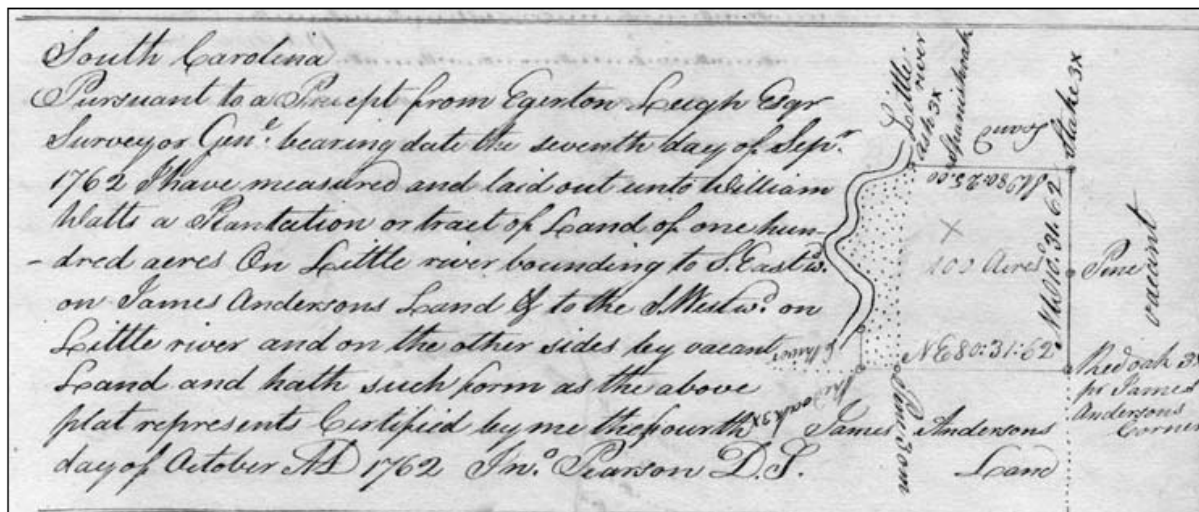 South Carolina
Pursuant to a Precept from Egerton Leigh Esqr
Surveyor Genl. bearing date the seventh day of Sepr.
1762 I have measured and laid out unto William
Watts a Plantation or tract of Land of one hun-
-dred acres On Little river bounding to S. Eastwd.
on James Andersons Land & to the S. Westwd. on
Little river and on the other sides by vacant
Land and hath such form as the above
plat represents Certified by me the fourth
day of October AD 1762 Jno. Pearson D. S.
Little
river
ash 3x
Spanish oak
Land
Stake 3x
SW 80:25.00
NW10.31.62
100 Acres
Pine
vacant
NE80:31:62
Red oak 3x
pr James
Andersons
Corner
Red oak 3x
James Andersons
Land